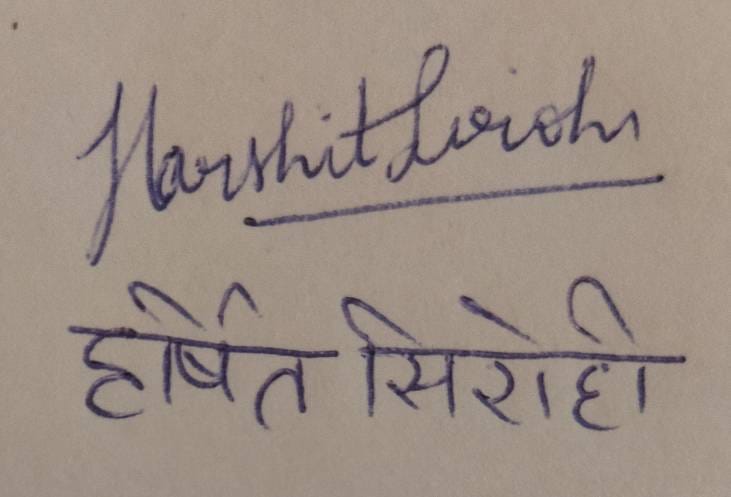 Harshit Sirohi
हर्षित सिरोही